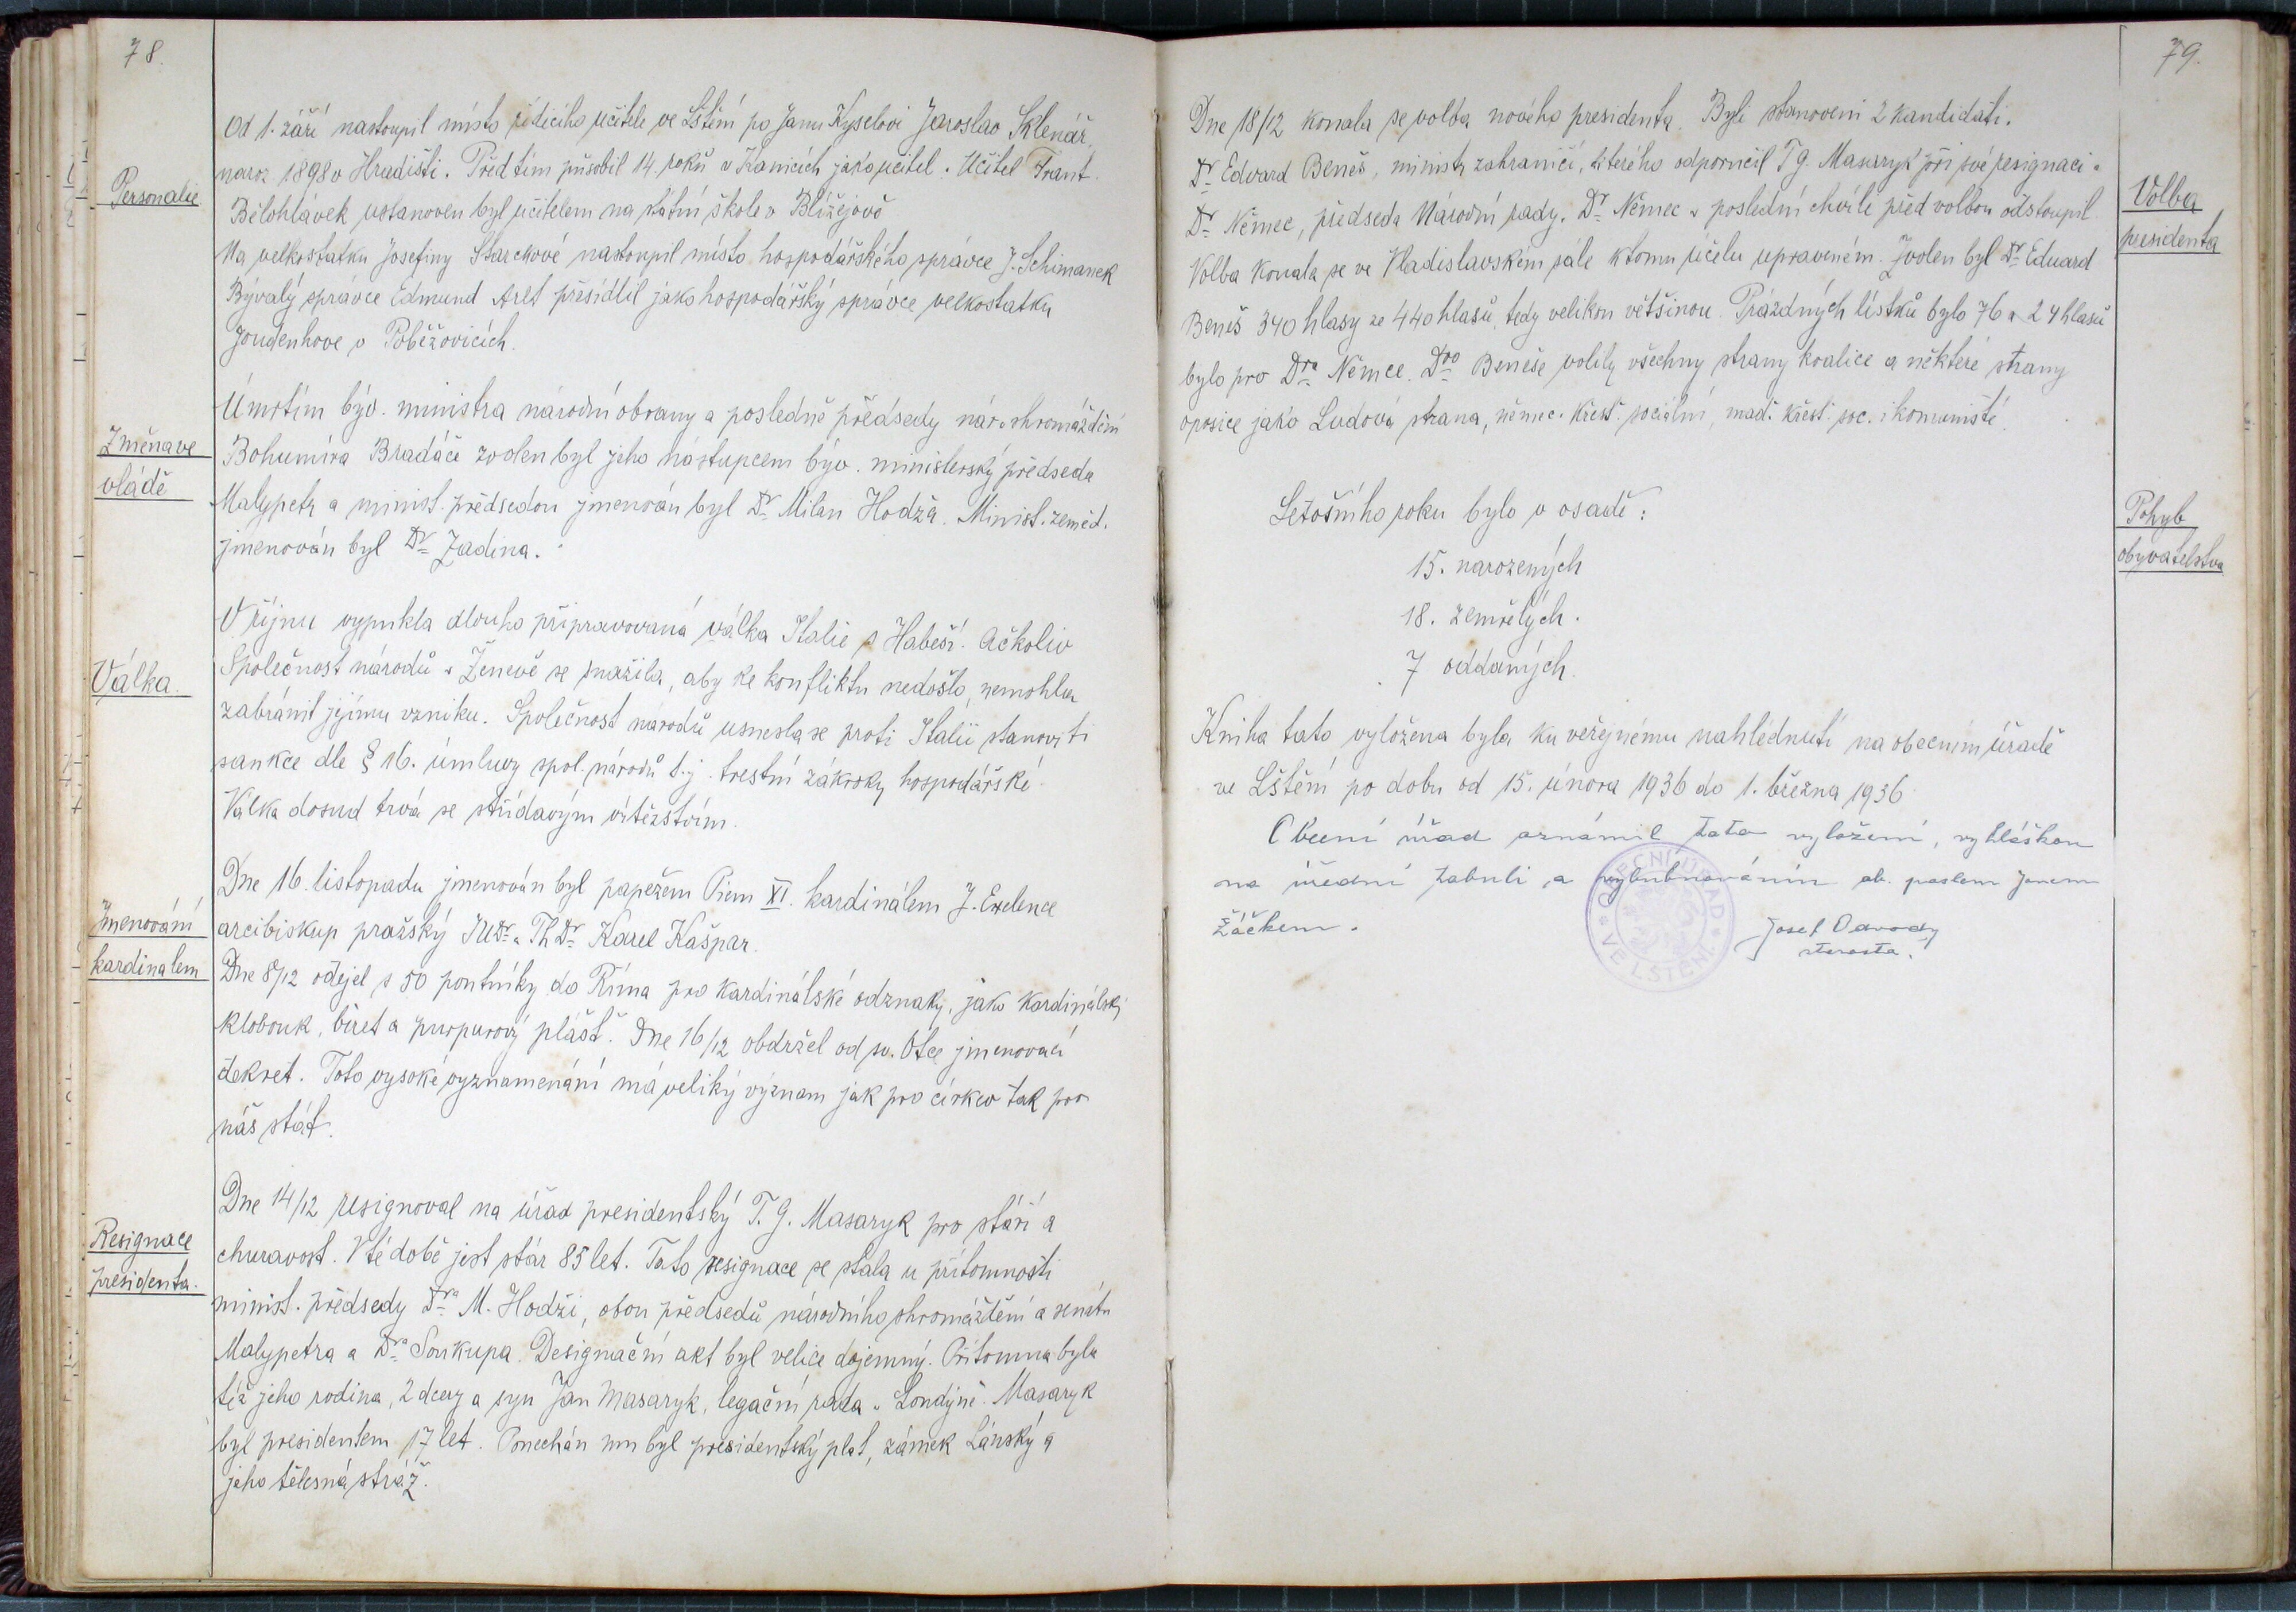 78.
Personalie
Od 1. září nastoupil místo řídícího učitele ve Lštění po Janu Kyselovi Jaroslav Sklenář,
naroz 1898 v Hradišti. Před tím působil 14. roků v Kanicích jako učitel. Učitel Frant.
Bělohlávek ustanoven byl učitelem na státní škole v Blížejově
Na velkostatku Josefiny Starckové nastoupil místo hospodářského správce J. Schimanek
Bývalý správce Edmund Arlt přesídlil jako hospodářský správce velkostatku
Joudenhove v Poběžovicích.
Změna ve
vládě
Úmrtím býv. ministra národní obrany a posledně předsedy nár. shromáždění
Bohumíra Bradáče zvolen byl jeho nástupcem býv. ministerský předseda
Malypetr a minist. předsedou jmenován byl Dr Milan Hodža. Minist. zeměd.
jmenován byl Dr Zadina.
Válka.
V říjnu vypukla dlouho připravovaná válka Italie s Habeší. Ačkoliv
Společnost národů v Ženevě se snažila, aby ke konfliktu nedošlo, nemohla
zabránit jejímu vzniku. Společnost národů usnesla se proti Italii stanoviti
sankce dle § 16. úmluvy spol. národů t.j. trestní zákroky hospodářské.
Válka dosud trvá se střídavým vítězstvím.
Jmenování
kardinalem
Dne 16. listopadu jmenován byl papežem Piem XI. kardinálem J. Exelence
arcibiskup pražský JUDr. ThDr Karel Kašpar.
Dne 8/12 odejel s 50 poutníky do Říma pro kardinálské odznaky, jako kardinálský
klobouk, biret a purpurový plášť. Dne 16/12 obdržel od sv. Otce jmenovací
dekret. Toto vysoké vyznamenání má veliký význam jak pro církev tak pro
náš stát.
Resignace
presidenta.
Dne 14/12 resignoval na úřad presidentský T. G. Masaryk pro stáří a
churavost. V té době jest stár 85 let. Tato resignace se stala u přítomnosti
minist. předsedy Dra M. Hodži, obou předsedů národního shromáždění a senátu
Malypetra a Dra Soukupa. Designační akt byl velice dojemný. Přítomna byla
též jeho rodina, 2 dcery a syn Jan Masaryk, legační rada v Londýně. Masaryk
byl presidentem 17 let. Ponechán mu byl presidentský plat, zámek Lánský a
jeho tělesná stráž.
79.
Volba
presidenta
Dne 18/12 konala se volba nového presidenta. Byli stanoveni 2 kandidáti.
Dr Edvard Beneš, ministr zahraničí, kterého odporučil T G. Masaryk při své resignaci a
Dr Němec, předseda Národní rady. Dr Němec v poslední chvíli před volbou odstoupil.
Volba konala se ve Vladislavském sále k tomu účelu upraveném. Zvolen byl Dr Eduard
Beneš 340 hlasy ze 440 hlasů, tedy velikou většinou. Prázdných lístků bylo 76 a 24 hlasů
bylo pro Dra Němce. Dra Beneše volily všechny strany koalice a některé strany
oposice jako Ludová strana, němec. křest. sociální, maď. křest. soc. i komunisté.
Pohyb
obyvatelstva
Letošního roku bylo v osadě:
15. narozených
18. zemřelých.
7 oddaných.
Kniha tato vyložena byla ku veřejnému nahlédnutí na obecním úřadě
ve Lštění po dobu od 15. února 1936 do 1. března 1936
Obecní úřad oznámil tato vyložení, vyhláškou
na úřední tabuli a vybubnováním ob. poslem Janem
Žáčkem.
OBECNÍ ÚŘAD
VE LŠTĚNÍ
Josef Odvody
starosta.